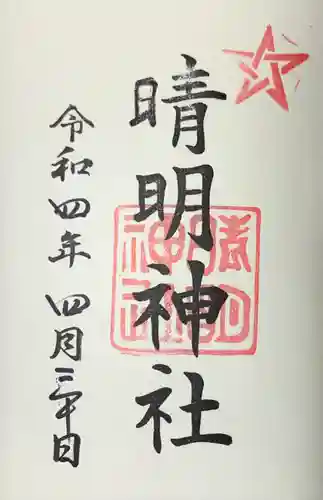 晴明神社
令和四年 四月三十日
晴明神社